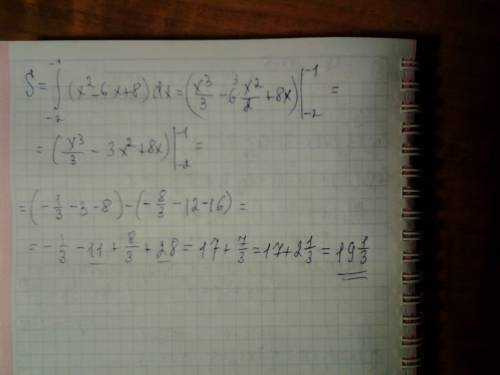 S = ∫_{-2}^{-1} (x² - 6x + 8) dx = (x³/3 - 6³ x²/2 + 8x) |_{-2}^{-1} =
= (x³/3 - 3x² + 8x) |_{-2}^{-1} =
= (-1/3 - 3 - 8) - (-8/3 - 12 - 16) =
= -1/3 - 11 + 8/3 + 28 = 17 + 7/3 = 17 + 2 1/3 = 19 1/3